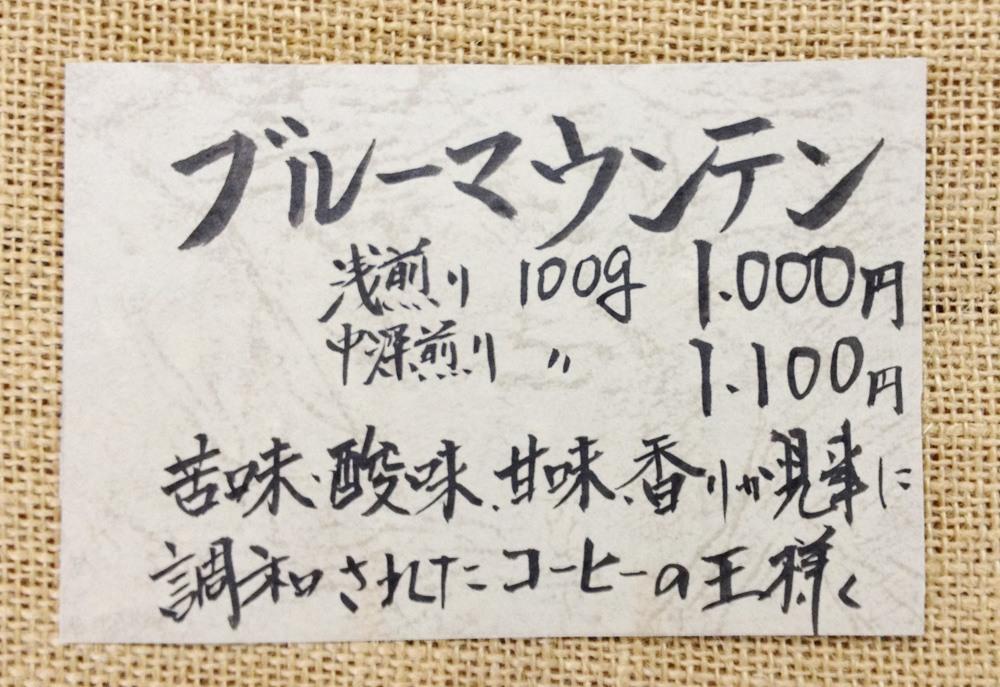 ブルーマウンテン
浅煎り 100g 1.000円
中深煎り 〃 1.100円
苦味、酸味、甘味、香りが見事に
調和されたコーヒーの王様く